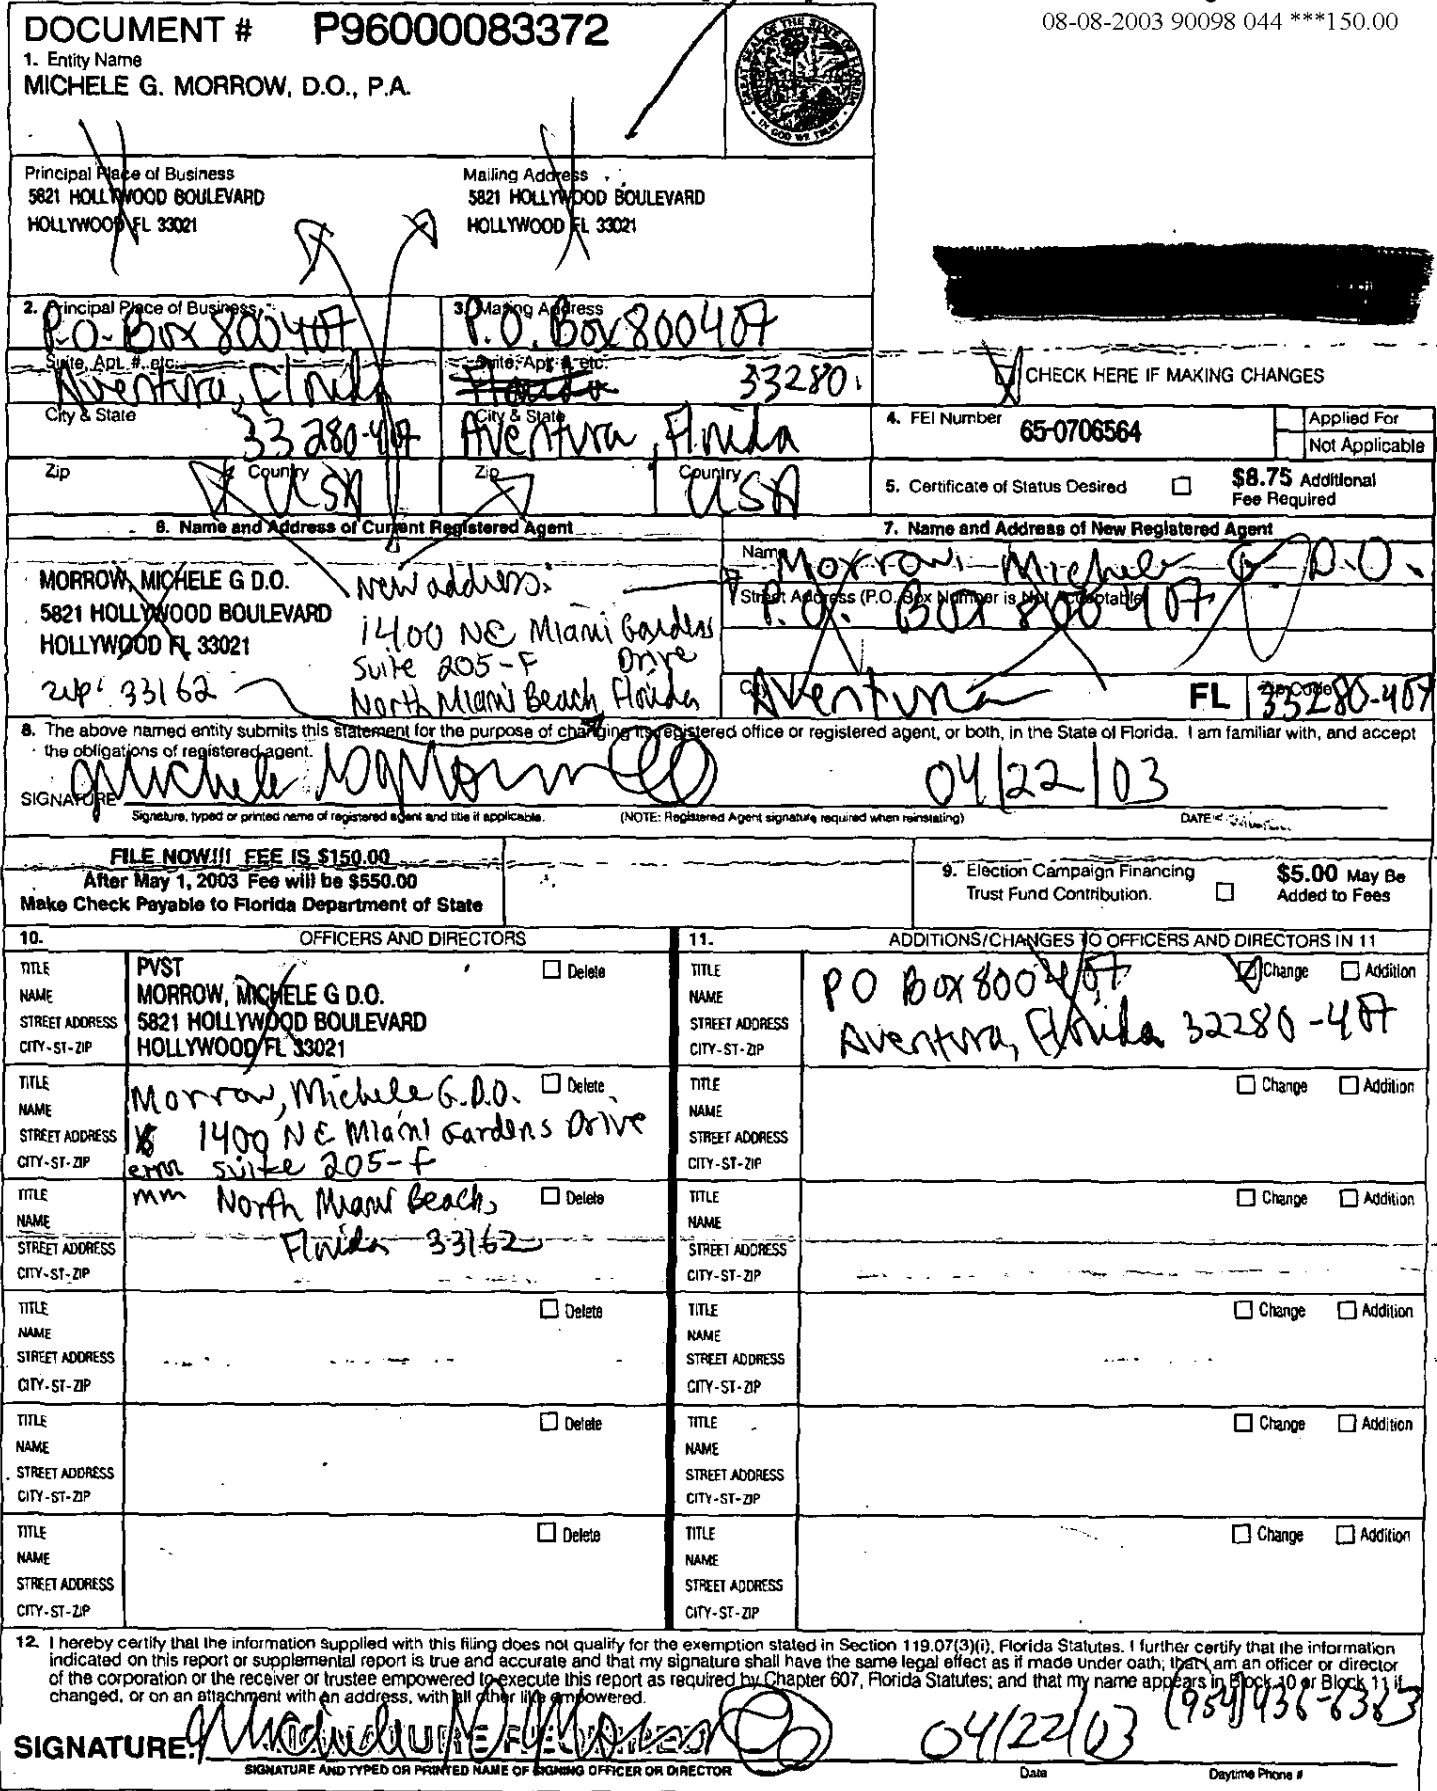 08-08-2003 90098 044 ***150.00
DOCUMENT # P96000083372
1. Entity Name
MICHELE G. MORROW, D.O., P.A.
GREAT SEAL OF THE STATE OF FLORIDA
IN GOD WE TRUST
Principal Place of Business
5821 HOLLYWOOD BOULEVARD
HOLLYWOOD FL 33021
Mailing Address
5821 HOLLYWOOD BOULEVARD
HOLLYWOOD FL 33021
2. Principal Place of Business
P.O. Box 800407
Suite, Apt. #, etc.
Aventura, Florida
City & State
33280-407
Zip
Country
USA
3. Mailing Address
P.O. Box 800407
Suite, Apt. #, etc.
Florida 33280
City & State
Aventura, Florida
Zip
Country
USA
CHECK HERE IF MAKING CHANGES
4. FEI Number
65-0706564
Applied For
Not Applicable
5. Certificate of Status Desired
$8.75 Additional
Fee Required
6. Name and Address of Current Registered Agent
MORROW, MICHELE G D.O.
5821 HOLLYWOOD BOULEVARD
HOLLYWOOD FL 33021
zip: 33162
New address:
1400 NE Miami Gardens
Drive
Suite 205-F
North Miami Beach, Florida
7. Name and Address of New Registered Agent
Name
Morrow, Michele G D.O.
Street Address (P.O. Box Number is Not Acceptable)
P.O. Box 800407
City
Aventura
FL
Zip Code
33280-407
8. The above named entity submits this statement for the purpose of changing its registered office or registered agent, or both, in the State of Florida. I am familiar with, and accept
the obligations of registered agent.
SIGNATURE
04/22/03
Signature, typed or printed name of registered agent and title if applicable.
(NOTE: Registered Agent signature required when reinstating)
DATE
FILE NOW!!! FEE IS $150.00
After May 1, 2003 Fee will be $550.00
Make Check Payable to Florida Department of State
9. Election Campaign Financing
Trust Fund Contribution.
$5.00 May Be
Added to Fees
10. OFFICERS AND DIRECTORS
11. ADDITIONS/CHANGES TO OFFICERS AND DIRECTORS IN 11
TITLE PVST Delete
NAME MORROW, MICHELE G D.O.
STREET ADDRESS 5821 HOLLYWOOD BOULEVARD
CITY-ST-ZIP HOLLYWOOD FL 33021
TITLE Change Addition
NAME PO Box 800407
STREET ADDRESS
CITY-ST-ZIP Aventura, Florida 32280-407
TITLE Delete
NAME Morrow, Michele G. D.O.
STREET ADDRESS 1400 NE Miami Gardens Drive
CITY-ST-ZIP Suite 205-F
TITLE Change Addition
NAME
STREET ADDRESS
CITY-ST-ZIP
TITLE mm North Miami Beach, Delete
NAME
STREET ADDRESS Florida 33162
CITY-ST-ZIP
TITLE Change Addition
NAME
STREET ADDRESS
CITY-ST-ZIP
TITLE Delete
NAME
STREET ADDRESS
CITY-ST-ZIP
TITLE Change Addition
NAME
STREET ADDRESS
CITY-ST-ZIP
TITLE Delete
NAME
STREET ADDRESS
CITY-ST-ZIP
TITLE Change Addition
NAME
STREET ADDRESS
CITY-ST-ZIP
TITLE Delete
NAME
STREET ADDRESS
CITY-ST-ZIP
TITLE Change Addition
NAME
STREET ADDRESS
CITY-ST-ZIP
12. I hereby certify that the information supplied with this filing does not qualify for the exemption stated in Section 119.07(3)(i), Florida Statutes. I further certify that the information
indicated on this report or supplemental report is true and accurate and that my signature shall have the same legal effect as if made under oath; that I am an officer or director
of the corporation or the receiver or trustee empowered to execute this report as required by Chapter 607, Florida Statutes; and that my name appears in Block 10 or Block 11 if
changed, or on an attachment with an address, with all other like empowered.
SIGNATURE:
04/22/03
SIGNATURE AND TYPED OR PRINTED NAME OF SIGNING OFFICER OR DIRECTOR
Date
Daytime Phone #